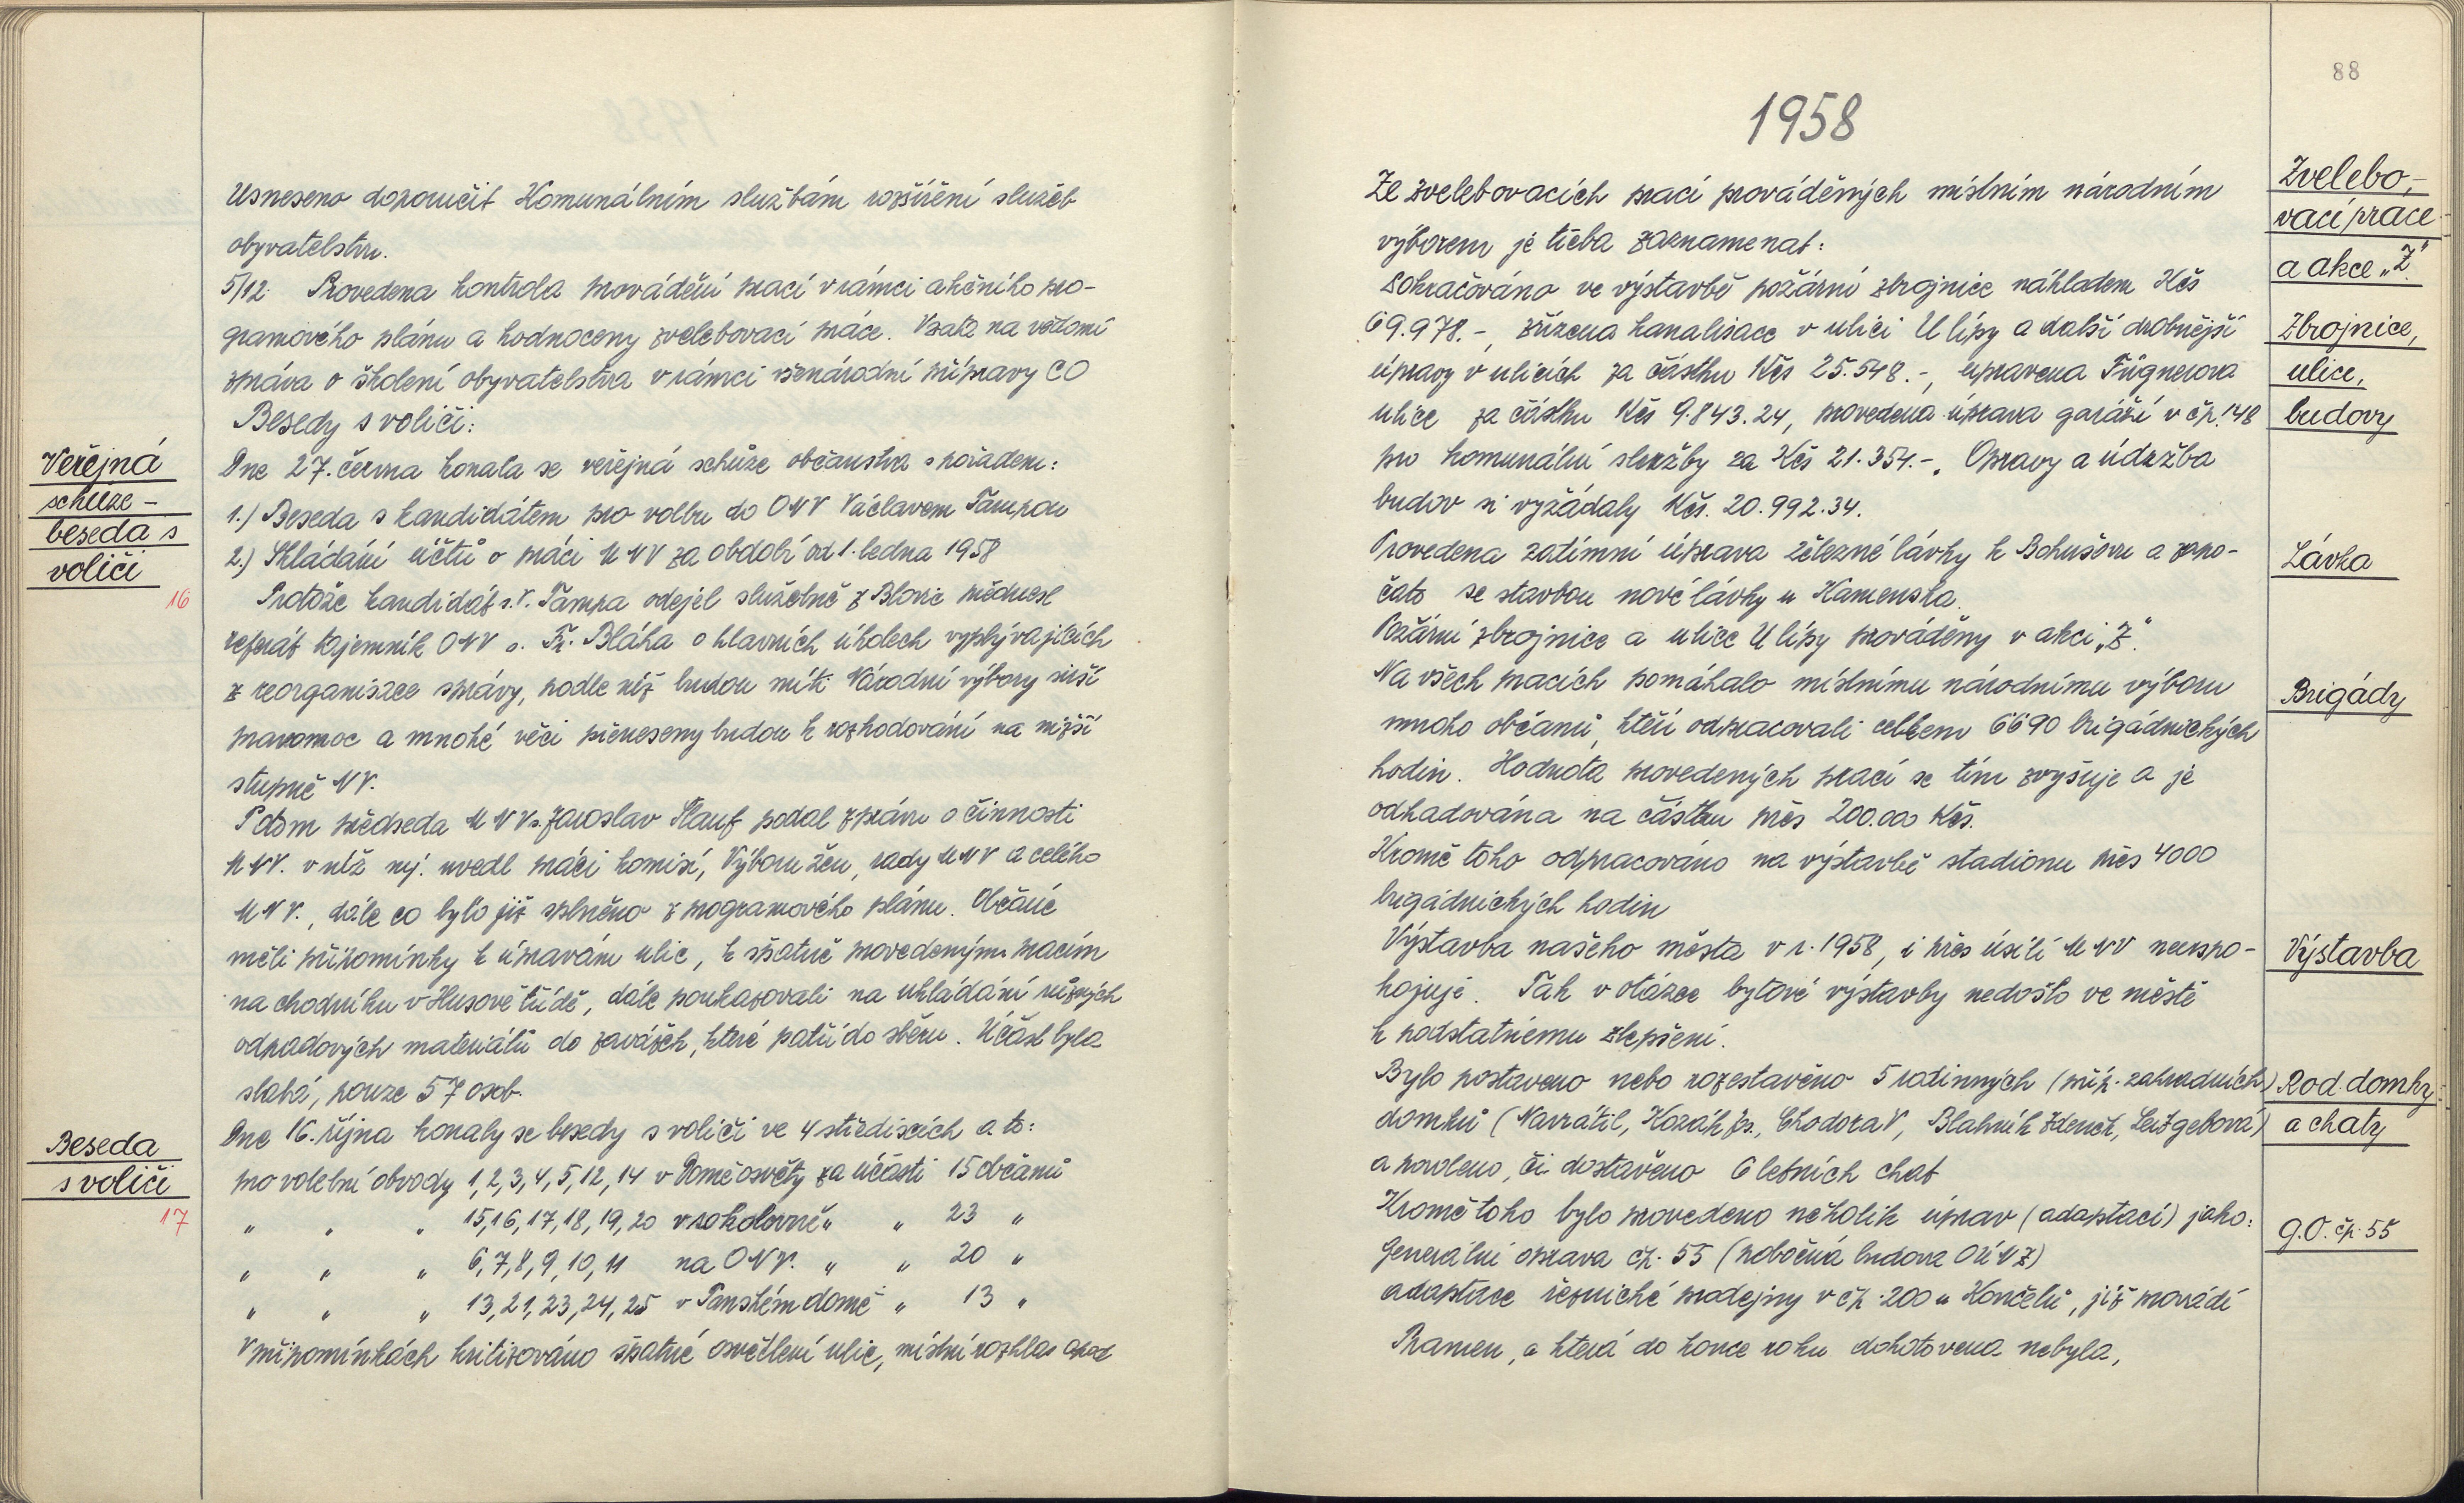 Usneseno doporučit Komunálním službám rozšíření služeb
obyvatelstvu.
5/12. Provedena kontrola provádění prací v rámci akčního pro-
gramového plánu a hodnoceny zvelebovací práce. Vzata na vědomí
zpráva o školení obyvatelstva v rámci všenárodní přípravy CO
Besedy s voliči:
Veřejná
schůze -
beseda s
voliči
16
Dne 27. června konala se veřejná schůze občanstva s pořadem:
1.) Beseda s kandidátem pro volbu do ONV Václavem Tampou
2.) Skládání účtů o práci MNV za období od 1. ledna 1958
Protože kandidát s. V. Tampa odejel služebně z Blovic přednesl
referát tajemník ONV s. Fr. Bláha o hlavních úkolech vyplývajících
z reorganisace správy, podle níž budou míti Národní výbory širší
pravomoc a mnohé věci přeneseny budou k rozhodování na nižší
stupně NV.
Potom předseda MNV s. Jaroslav Flauf podal zprávu o činnosti
MNV. v níž nej. uvedl práci komisí, Výboru žen, rady MNV a celého
MNV., dále co bylo již splněno z programového plánu. Občané
měli připomínky k úpravám ulic, k špatně provedeným pracím
na chodníku v Husově třídě, dále poukazovali na ukládání různých
odpadových materiálů do zavážek, které patří do sběru. Účast byla
slabá, pouze 57 osob.
Beseda
s voliči
17
Dne 16. října konaly se besedy s voliči ve 4 střediscích a to:
pro volební obvody 1, 2, 3, 4, 5, 12, 14 v Domě osvěty za účasti 15 občanů
" " " 15, 16, 17, 18, 19, 20 v sokolovně " " 23 "
" " " 6, 7, 8, 9, 10, 11 na ONV. " " 20 "
" " " 13, 21, 23, 24, 25 v Panském domě " 13 "
V připomínkách kritizováno špatné osvětlení ulic, místní rozhlas apod
88
1958
Zvelebo-
vací práce
a akce „Z"
Ze zvelebovacích prací prováděných místním národním
výborem je třeba zaznamenat:
Pokračováno ve výstavbě požární zbrojnice nákladem Kčs
69.978.-, zřízena kanalisace v ulici U lípy a další drobnější
úpravy v ulicích za částku Kčs 25.548.-, upravena Fügnerova
ulice za částku Kčs 9.843.24, provedena úprava garáží v čp. 148
pro komunální služby za Kčs 21.354.-. Opravy a údržba
budov si vyžádaly Kčs. 20.992.34.
Zbrojnice,
ulice,
budovy
Lávka
Provedena zatímní úprava železné lávky k Bohušovu a zapo-
čato se stavbou nové lávky u Kamenska.
Požární zbrojnice a ulice U lípy prováděny v akci „Z".
Brigády
Na všech pracích pomáhalo místnímu národnímu výboru
mnoho občanů, kteří odpracovali celkem 6690 brigádnických
hodin. Hodnota provedených prací se tím zvyšuje a je
odhadována na částku přes 200.000 Kčs.
Kromě toho odpracováno na výstavbě stadionu přes 4000
brigádnických hodin
Výstavba
Výstavba našeho města v r. 1958, i přes úsilí MNV neuspo-
kojuje. Tak v otázce bytové výstavby nedošlo ve městě
k podstatnému zlepšení.
Rod. domky
a chaty
Bylo postaveno nebo rozestavěno 5 rodinných (příp. zahradních)
domků (Navrátil, Kozák Js., Chodora V, Blahník Zdeněk, Leitgebová)
a povoleno, či dostavěno 6 letních chat
G.O. čp. 55
Kromě toho bylo provedeno několik úprav (adaptací) jako:
Generální oprava čp. 55 (pobočná budova OÚNZ)
adaptace řeznické prodejny v čp. 200 u Končelů, již provádí
Pramen, a která do konce roku dohotovena nebyla,